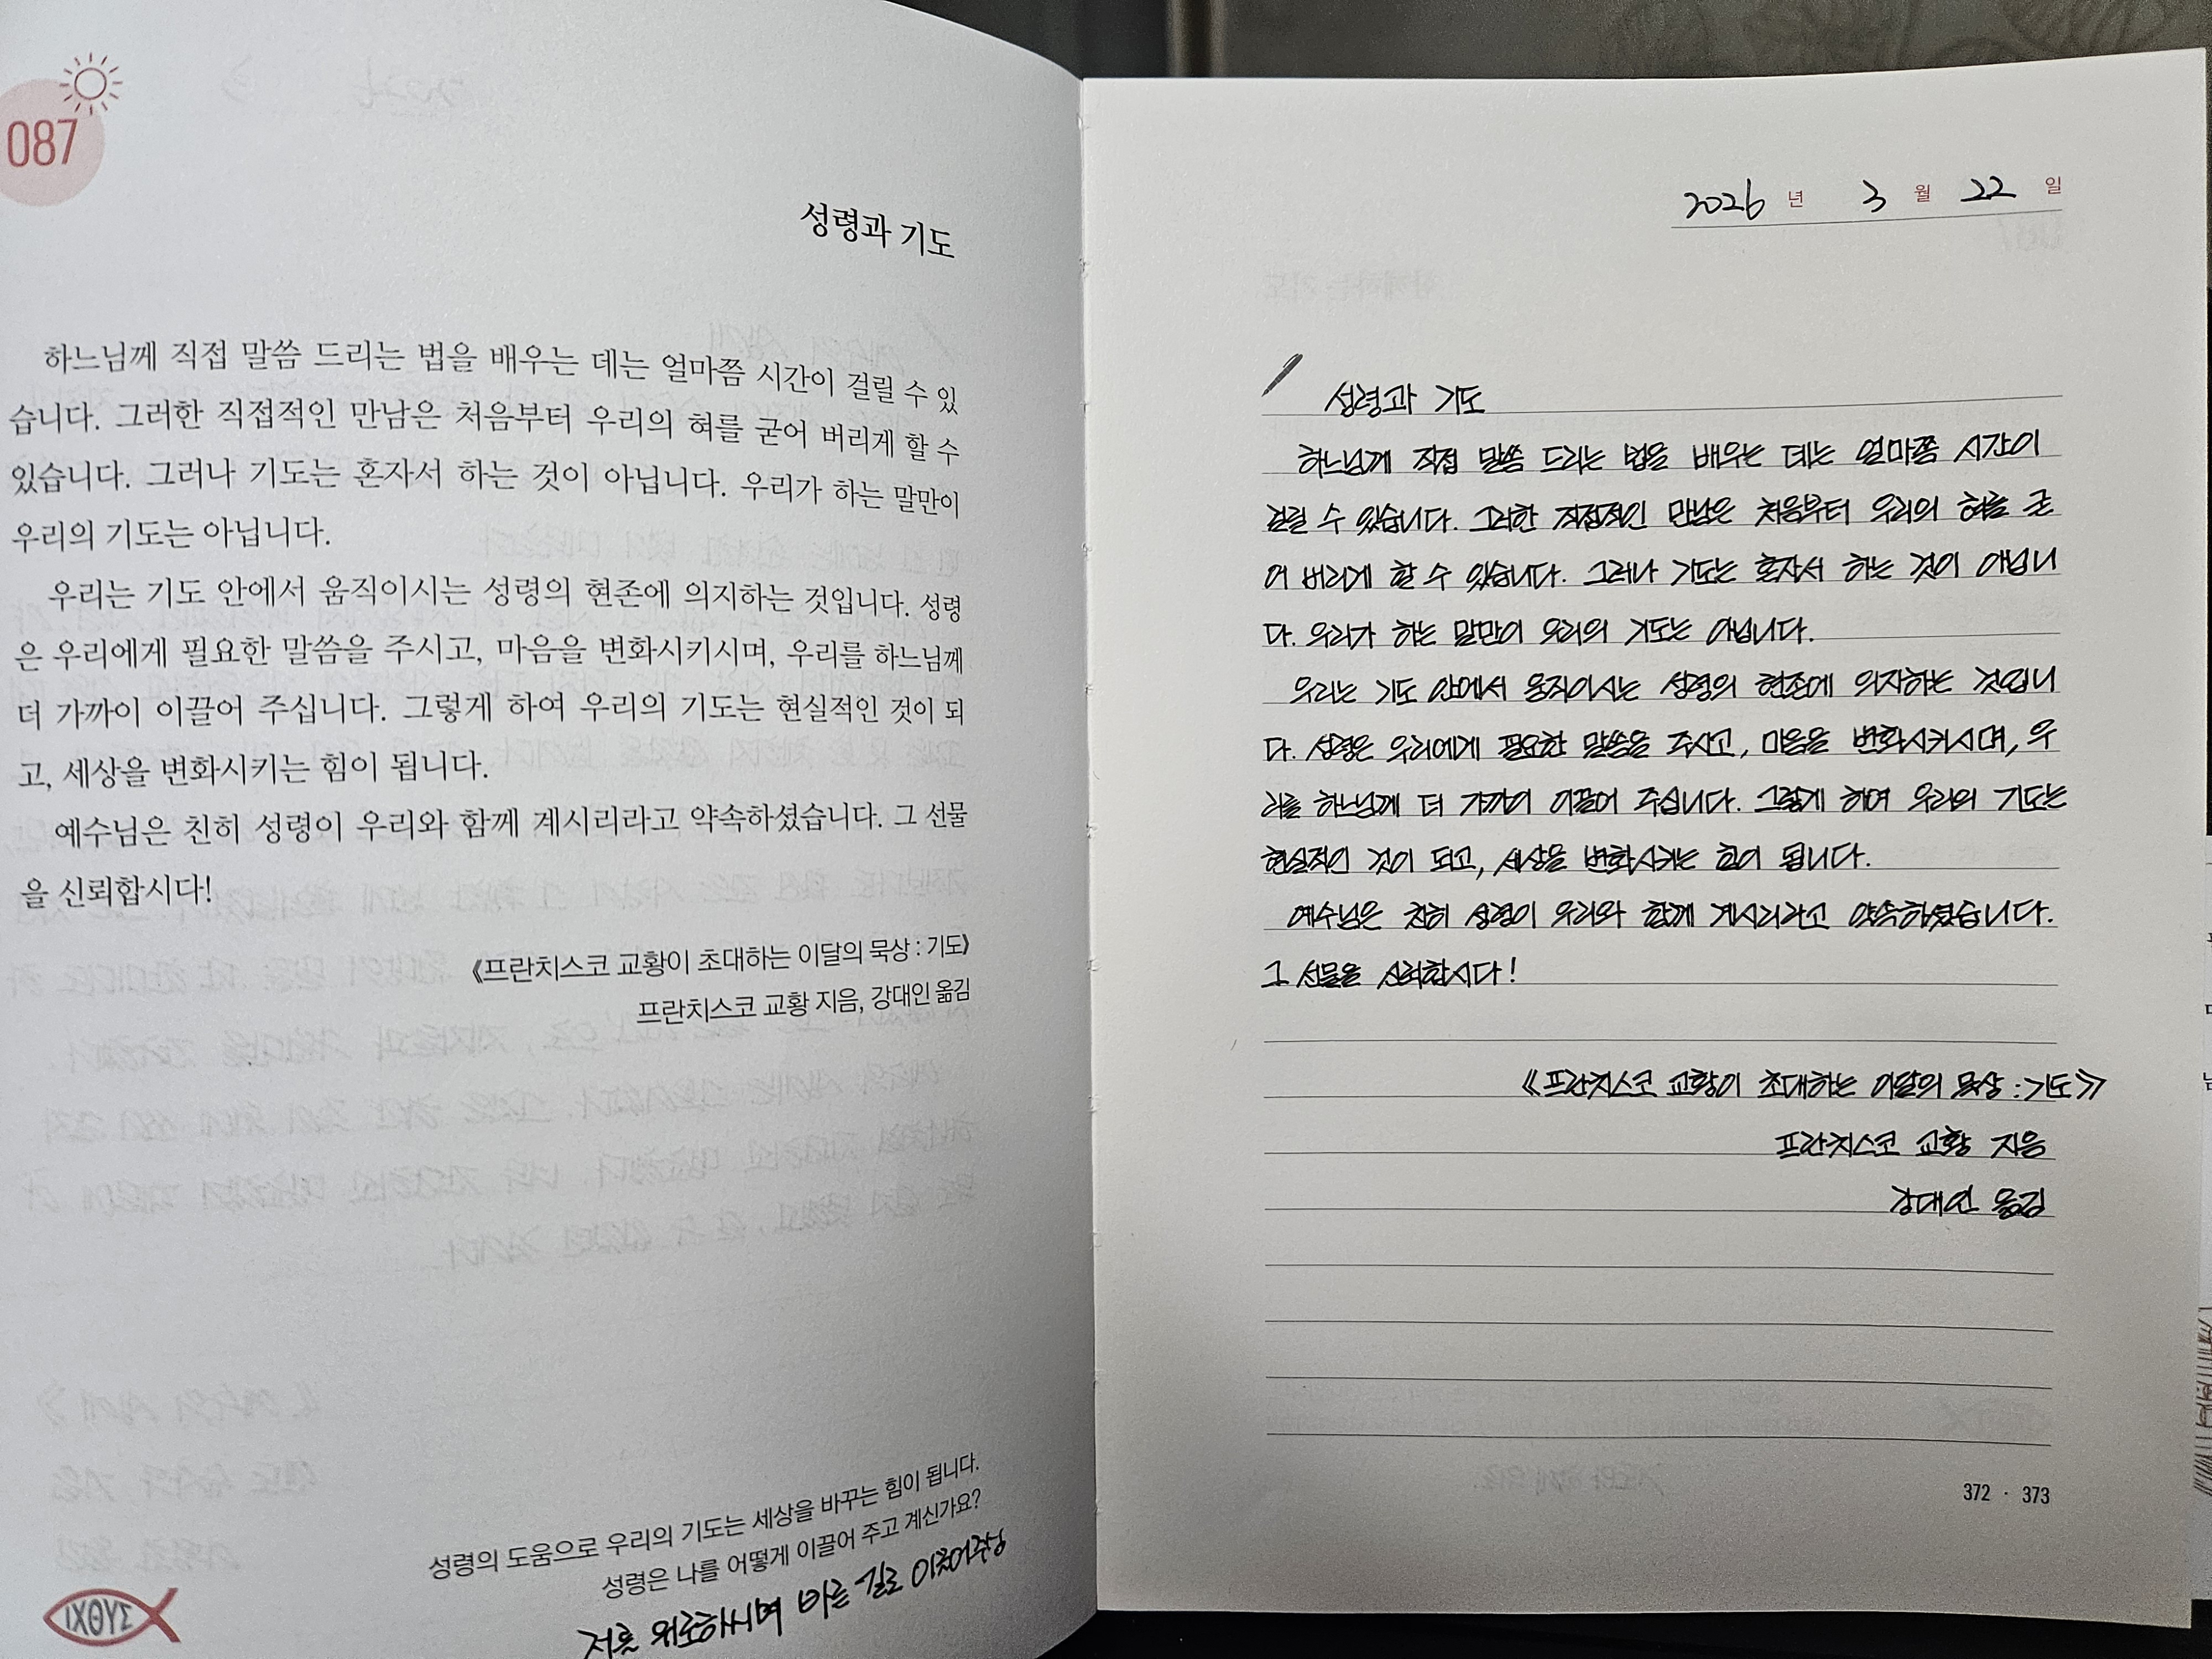 087
성령과 기도
하느님께 직접 말씀 드리는 법을 배우는 데는 얼마쯤 시간이 걸릴 수 있
습니다. 그러한 직접적인 만남은 처음부터 우리의 혀를 굳어 버리게 할 수
있습니다. 그러나 기도는 혼자서 하는 것이 아닙니다. 우리가 하는 말만이
우리의 기도는 아닙니다.
우리는 기도 안에서 움직이시는 성령의 현존에 의지하는 것입니다. 성령
은 우리에게 필요한 말씀을 주시고, 마음을 변화시키시며, 우리를 하느님께
더 가까이 이끌어 주십니다. 그렇게 하여 우리의 기도는 현실적인 것이 되
고, 세상을 변화시키는 힘이 됩니다.
예수님은 친히 성령이 우리와 함께 계시리라고 약속하셨습니다. 그 선물
을 신뢰합시다!
《프란치스코 교황이 초대하는 이달의 묵상 : 기도》
프란치스코 교황 지음, 강대인 옮김
성령의 도움으로 우리의 기도는 세상을 바꾸는 힘이 됩니다.
성령은 나를 어떻게 이끌어 주고 계신가요?
저를 위로하시며 바른 길로 이끌어주심
ΙΧΘΥΣ
2026 년 3 월 22 일
성령과 기도
하느님께 직접 말씀 드리는 법을 배우는 데는 얼마쯤 시간이
걸릴 수 있습니다. 그러한 직접적인 만남은 처음부터 우리의 혀를 굳
어 버리게 할 수 있습니다. 그러나 기도는 혼자서 하는 것이 아닙니
다. 우리가 하는 말만이 우리의 기도는 아닙니다.
우리는 기도 안에서 움직이시는 성령의 현존에 의지하는 것입니
다. 성령은 우리에게 필요한 말씀을 주시고, 마음을 변화시키시며, 우
리를 하느님께 더 가까이 이끌어 주십니다. 그렇게 하여 우리의 기도는
현실적인 것이 되고, 세상을 변화시키는 힘이 됩니다.
예수님은 친히 성령이 우리와 함께 계시리라고 약속하셨습니다.
그 선물을 신뢰합시다!
《프란치스코 교황이 초대하는 이달의 묵상 : 기도》
프란치스코 교황 지음
강대인 옮김
372 · 373